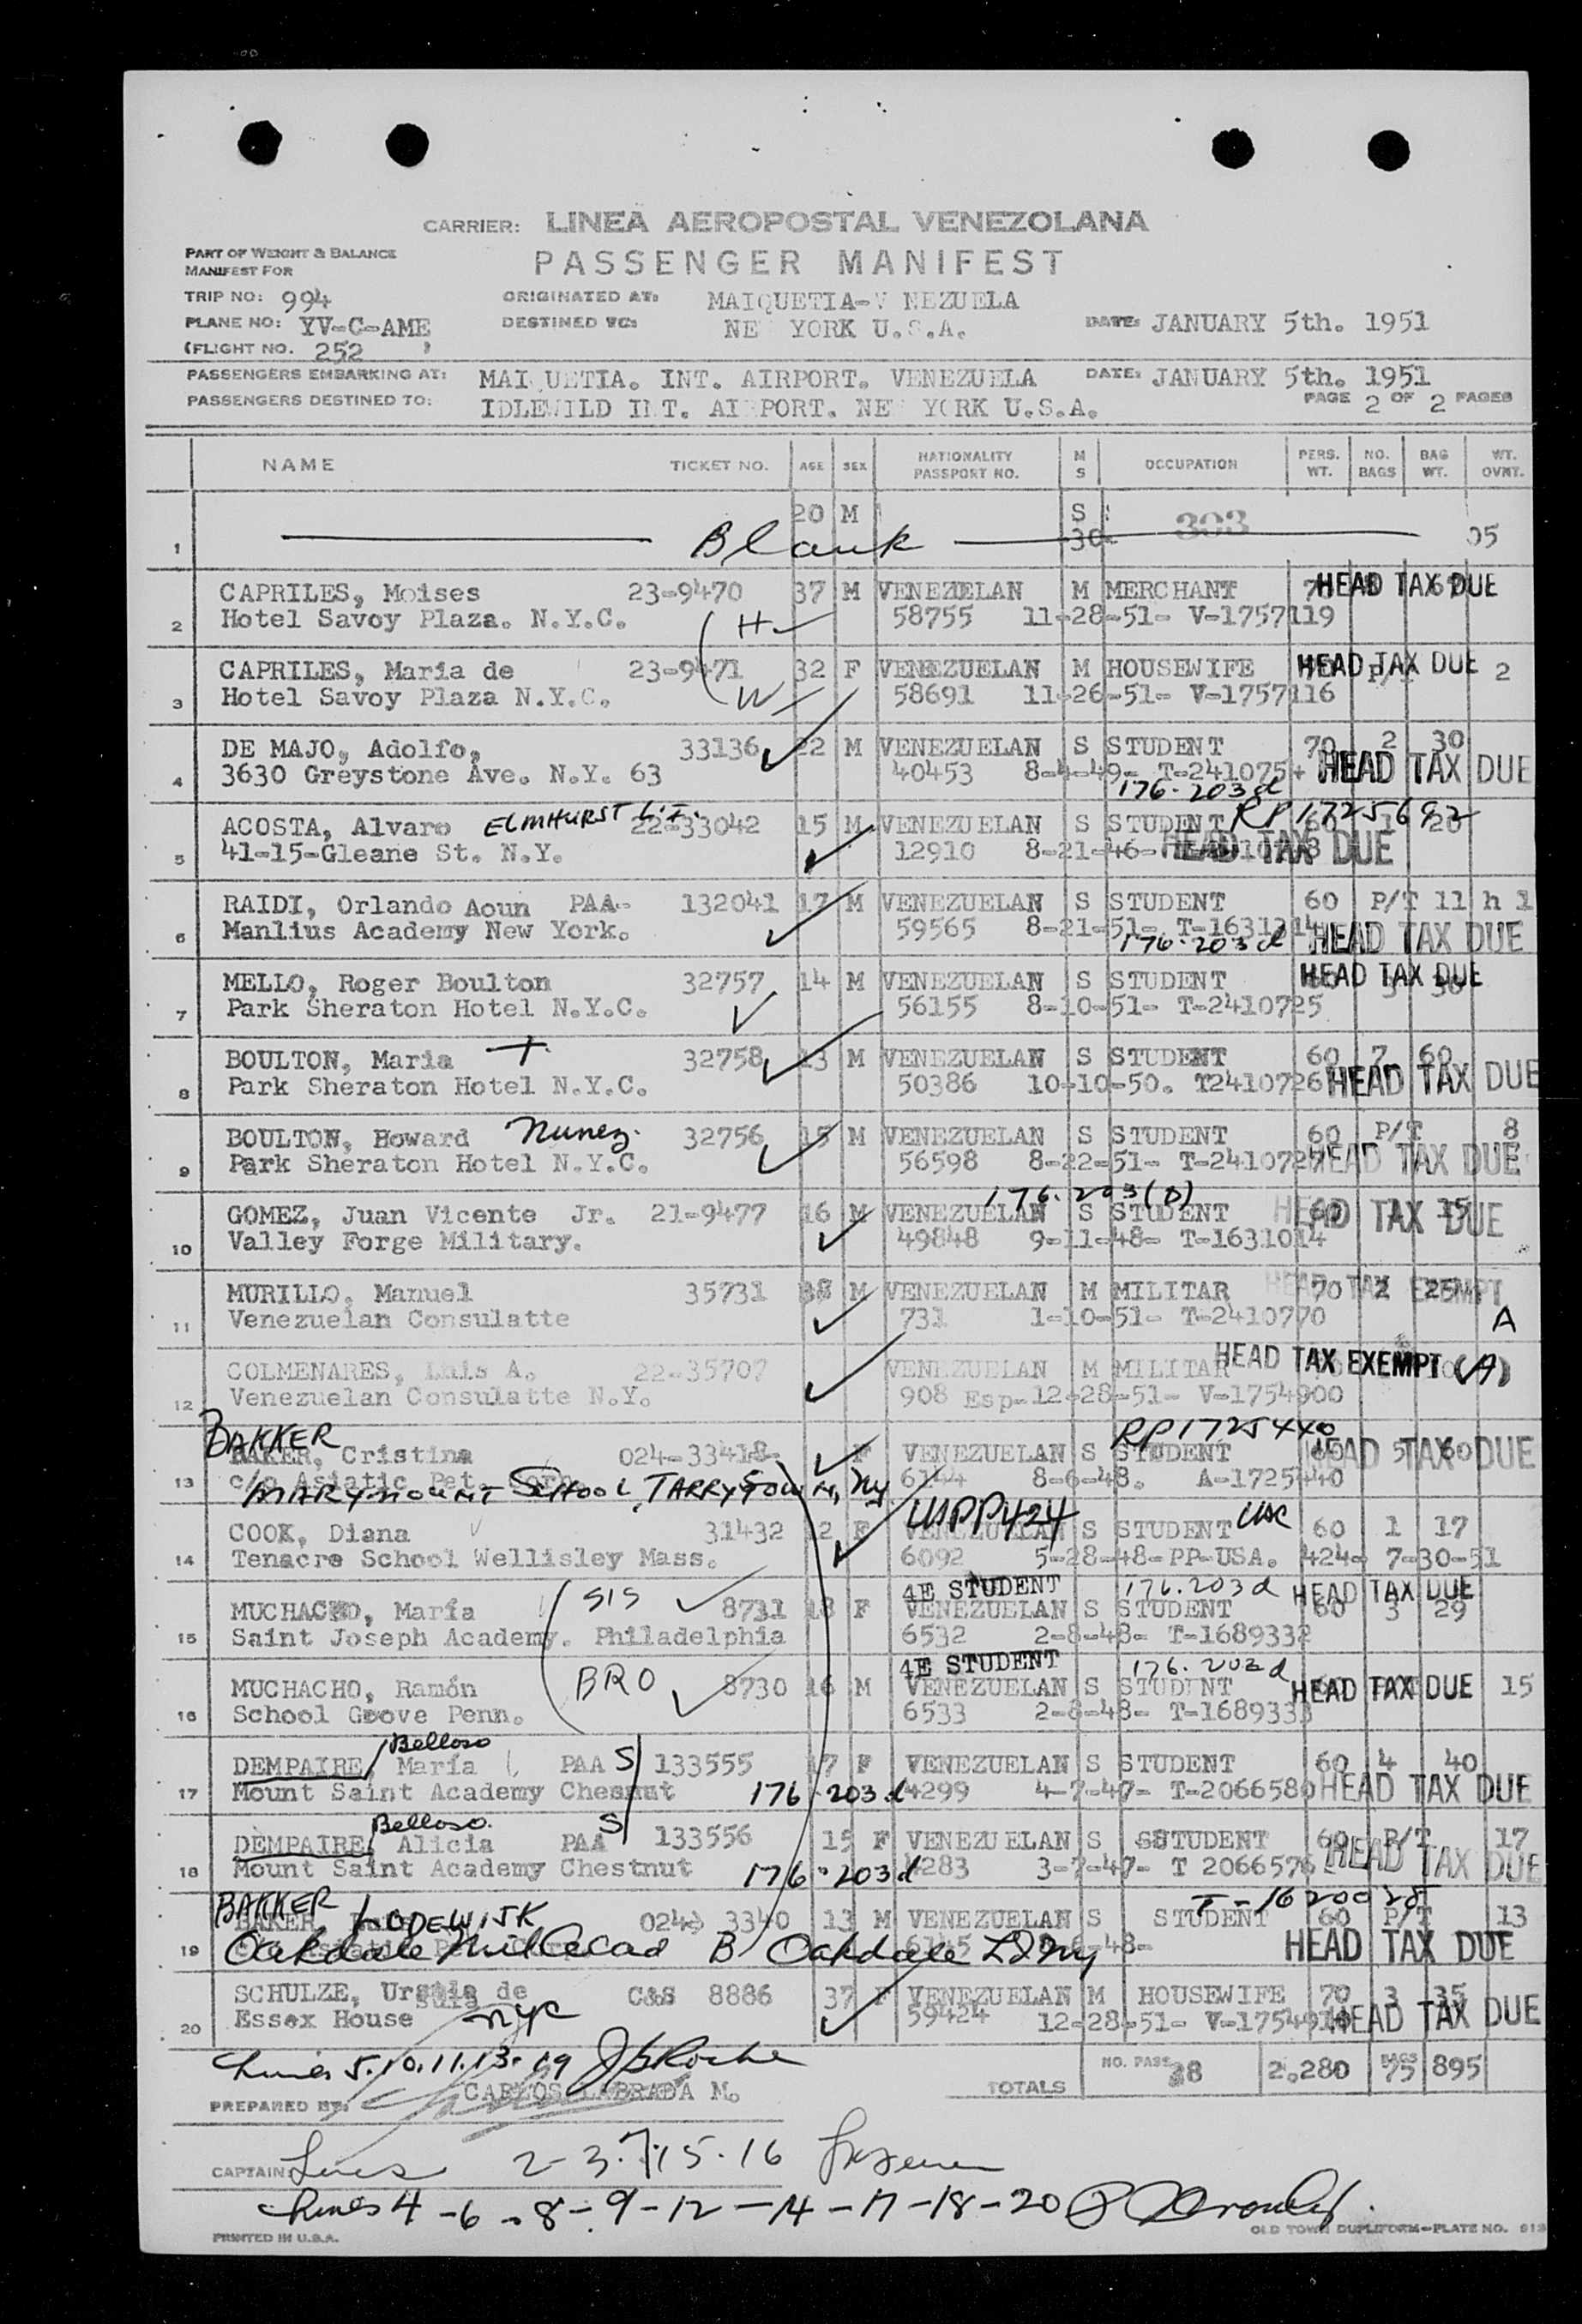 CARRIER: LINEA AEROPOSTAL VENEZOLANA
PART OF WEIGHT & BALANCE
MANIFEST FOR
PASSENGER MANIFEST
TRIP NO: 994 ORIGINATED AT: MAIQUETIA-V NEZUELA
PLANE NO: YV-C-AME DESTINED TO: NE YORK U.S.A. DATE: JANUARY 5th. 1951
(FLIGHT NO. 252 )
PASSENGERS EMBARKING AT: MAI UETIA. INT. AIRPORT. VENEZUELA DATE: JANUARY 5th. 1951
PASSENGERS DESTINED TO: IDLEWILD INT. AI PORT. NE YORK U.S.A. PAGE 2 OF 2 PAGES
NAME TICKET NO. AGE SEX NATIONALITY PASSPORT NO. M S OCCUPATION PERS. WT. NO. BAGS BAG WT. WT. OVNT.
20 M S 303
1 Blank 30 05
CAPRILES, Moises 23-9470 37 M VENEZUELAN M MERCHANT HEAD TAX DUE
2 Hotel Savoy Plaza. N.Y.C. H 58755 11-28-51- V-1757119
CAPRILES, Maria de 23-9471 32 F VENEZUELAN M HOUSEWIFE HEAD TAX DUE 2
3 Hotel Savoy Plaza N.Y.C. W 58691 11-26-51- V-1757116
DE MAJO, Adolfo, 33136 22 M VENEZUELAN S STUDENT 70 2 30
4 3630 Greystone Ave. N.Y. 63 40453 8-4-49- T-241075+ HEAD TAX DUE
176-203d
ACOSTA, Alvaro ELMHURST L.I. 22-33042 15 M VENEZUELAN S STUDENT RP1725692 60 1 20
5 41-15-Gleane St. N.Y. 12910 8-21-46- HEAD TAX DUE
RAIDI, Orlando Aoun PAA- 132041 17 M VENEZUELAN S STUDENT 60 P/T 11 h 1
6 Manlius Academy New York. 59565 8-21-51- T-1631314 HEAD TAX DUE
176-203d
MELLO, Roger Boulton 32757 14 M VENEZUELAN S STUDENT HEAD TAX DUE
7 Park Sheraton Hotel N.Y.C. 56155 8-10-51- T-2410725
BOULTON, Maria T. 32758 13 M VENEZUELAN S STUDENT 60 7 60
8 Park Sheraton Hotel N.Y.C. 50386 10-10-50. T2410726 HEAD TAX DUE
BOULTON, Howard Nunez. 32756 15 M VENEZUELAN S STUDENT 60 P/T 8
9 Park Sheraton Hotel N.Y.C. 56598 8-22-51- T-2410727 HEAD TAX DUE
176.203(D)
GOMEZ, Juan Vicente Jr. 21-9477 16 M VENEZUELAN S STUDENT 60 1 15 HEAD TAX DUE
10 Valley Forge Military. 49848 9-11-48- T-1631014
MURILLO, Manuel 35731 38 M VENEZUELAN M MILITAR 70 2 25 HEAD TAX EXEMPT
11 Venezuelan Consulatte 731 1-10-51- T-2410770 A
COLMENARES, Luis A. 22-35707 VENEZUELAN M MILITAR HEAD TAX EXEMPT (A)
12 Venezuelan Consulatte N.Y. 908 Esp- 12-28-51- V-1754900
BAKKER RP1725440
BAKER, Cristina 024-33418- F VENEZUELAN S STUDENT 60 5 60 HEAD TAX DUE
13 c/o Asiatic Pet. Corp. 6144 8-6-48. A-1725440
MARYMOUNT SCHOOL, TARRYTOWN, NY
COOK, Diana 31432 12 F VENEZUELAN USPP424 S STUDENT USC 60 1 17
14 Tenacre School Wellisley Mass. 6092 5-28-48-PP-USA. 424- 7-30-51
SIS 4E STUDENT 176.203d HEAD TAX DUE
MUCHACHO, María 8731 18 F VENEZUELAN S STUDENT 60 3 29
15 Saint Joseph Academy. Philadelphia 6532 2-8-48- T-1689332
BRO 4E STUDENT 176.203d
MUCHACHO, Ramón 8730 16 M VENEZUELAN S STUDENT HEAD TAX DUE 15
16 School Grove Penn. 6533 2-8-48- T-1689333
Belloso
DEMPAIRE, María PAA S 133555 17 F VENEZUELAN S STUDENT 60 4 40
17 Mount Saint Academy Chesnut 176-203d 4299 4-7-47- T-2066580 HEAD TAX DUE
Belloso.
DEMPAIRE, Alicia PAA S 133556 15 F VENEZUELAN S SSTUDENT 60 P/T 17
18 Mount Saint Academy Chestnut 176-203d 4283 3-7-47- T 2066576 HEAD TAX DUE
BAKKER T-1620028
BAKER, LODEWIJK 024 3340 13 M VENEZUELAN S STUDENT 60 P/T 13
19 Oakdale Mil Acad B Oakdale L I ny 6145 HEAD TAX DUE
SCHULZE, Ursula de C&S 8886 37 F VENEZUELAN M HOUSEWIFE 70 3 35
20 Essex House nyc 59424 12-28-51- HEAD TAX DUE
Lines 5.10.11.13.19
NO. PASS. 38 2.280 BAGS 75 895
TOTALS
PREPARED BY: CARLOS LABRADA M.
CAPTAIN: Lines 2-3.7.15.16
Lines 4-6-8-9-12-14-17-18-20
PRINTED IN U.S.A. OLD TOWN DUPLIFORM-PLATE NO. 913